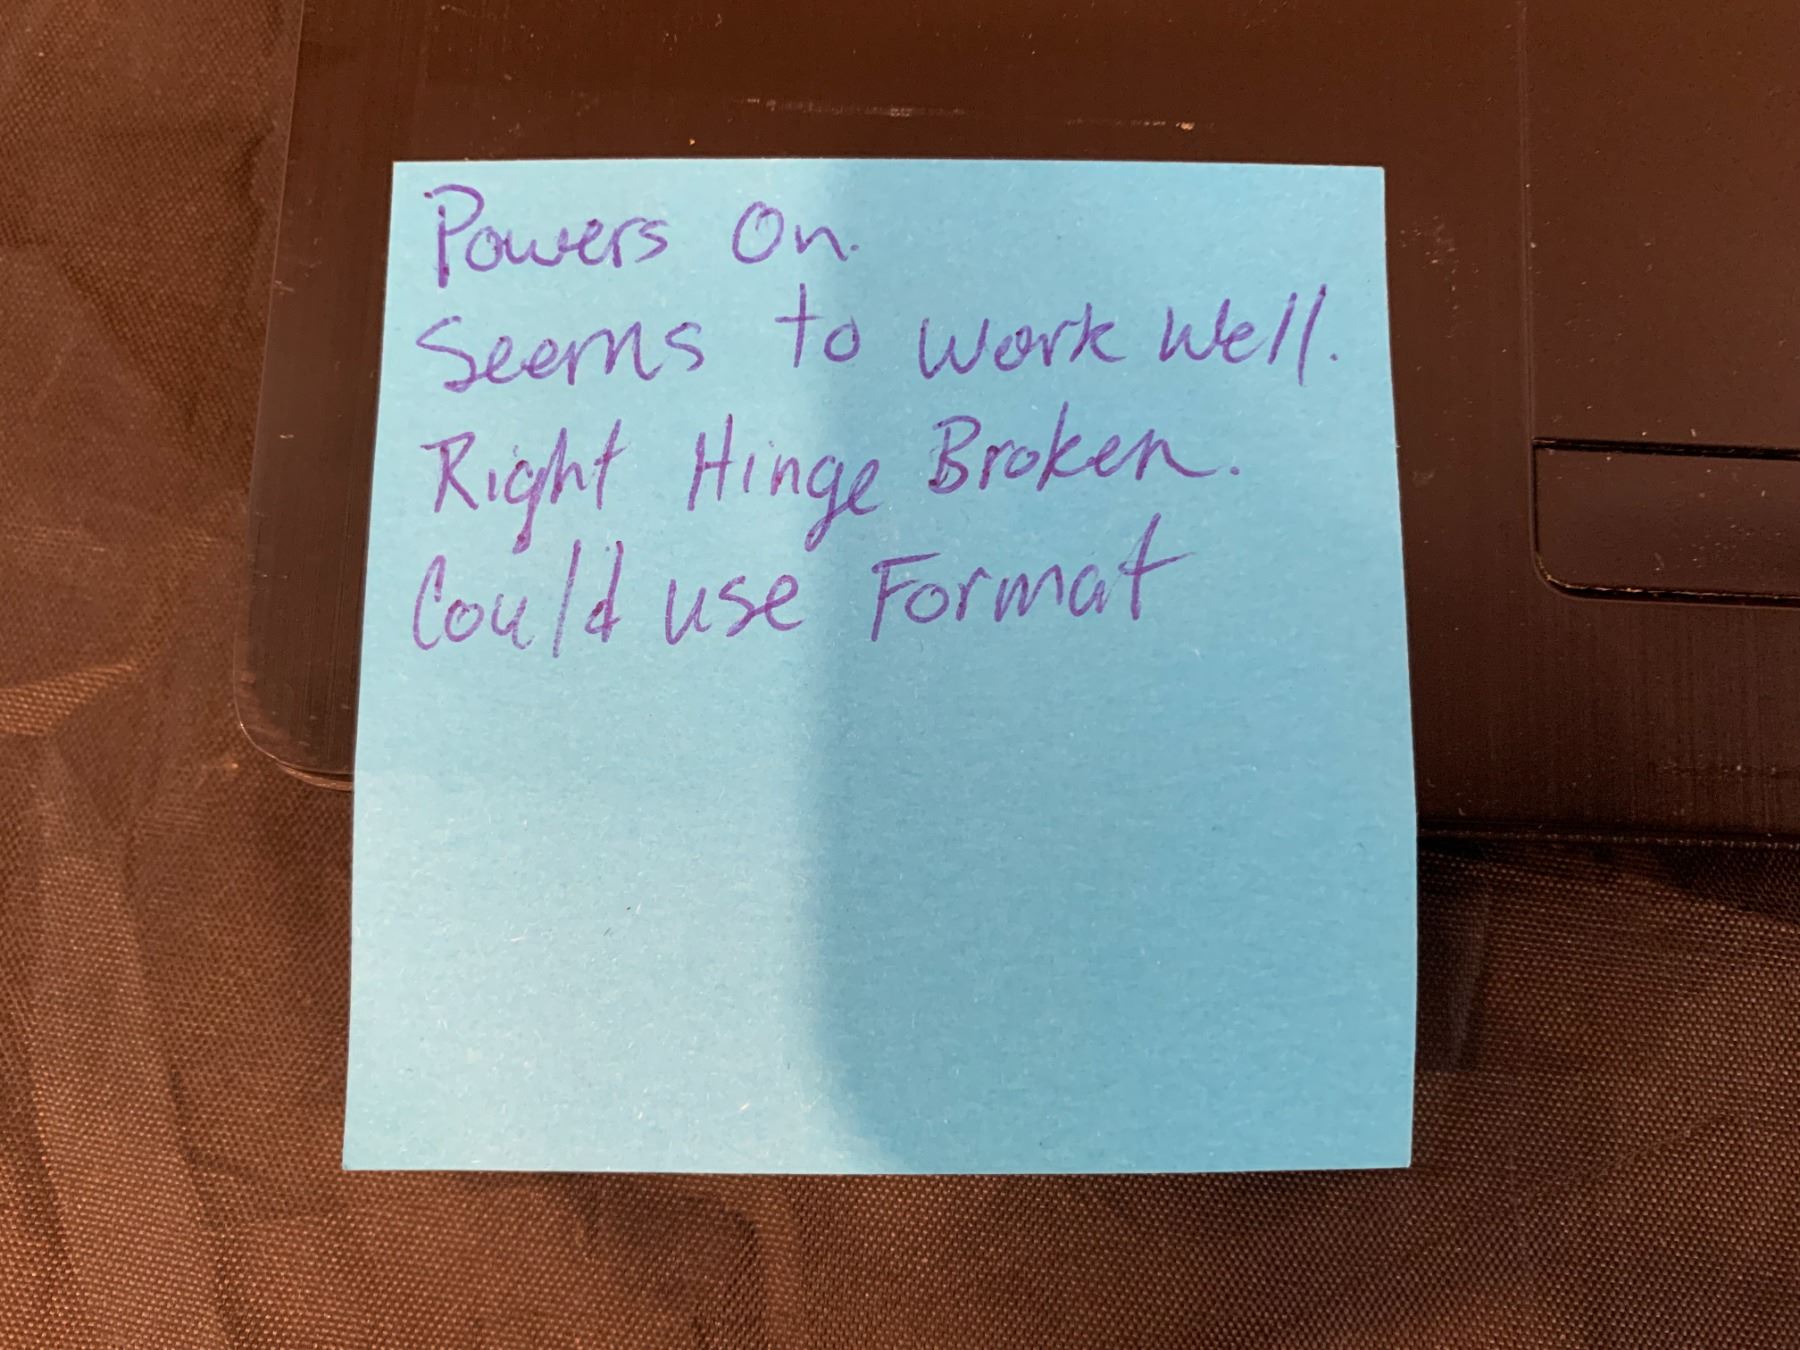 Powers On.
Seems to work well.
Right Hinge Broken.
Could use Format